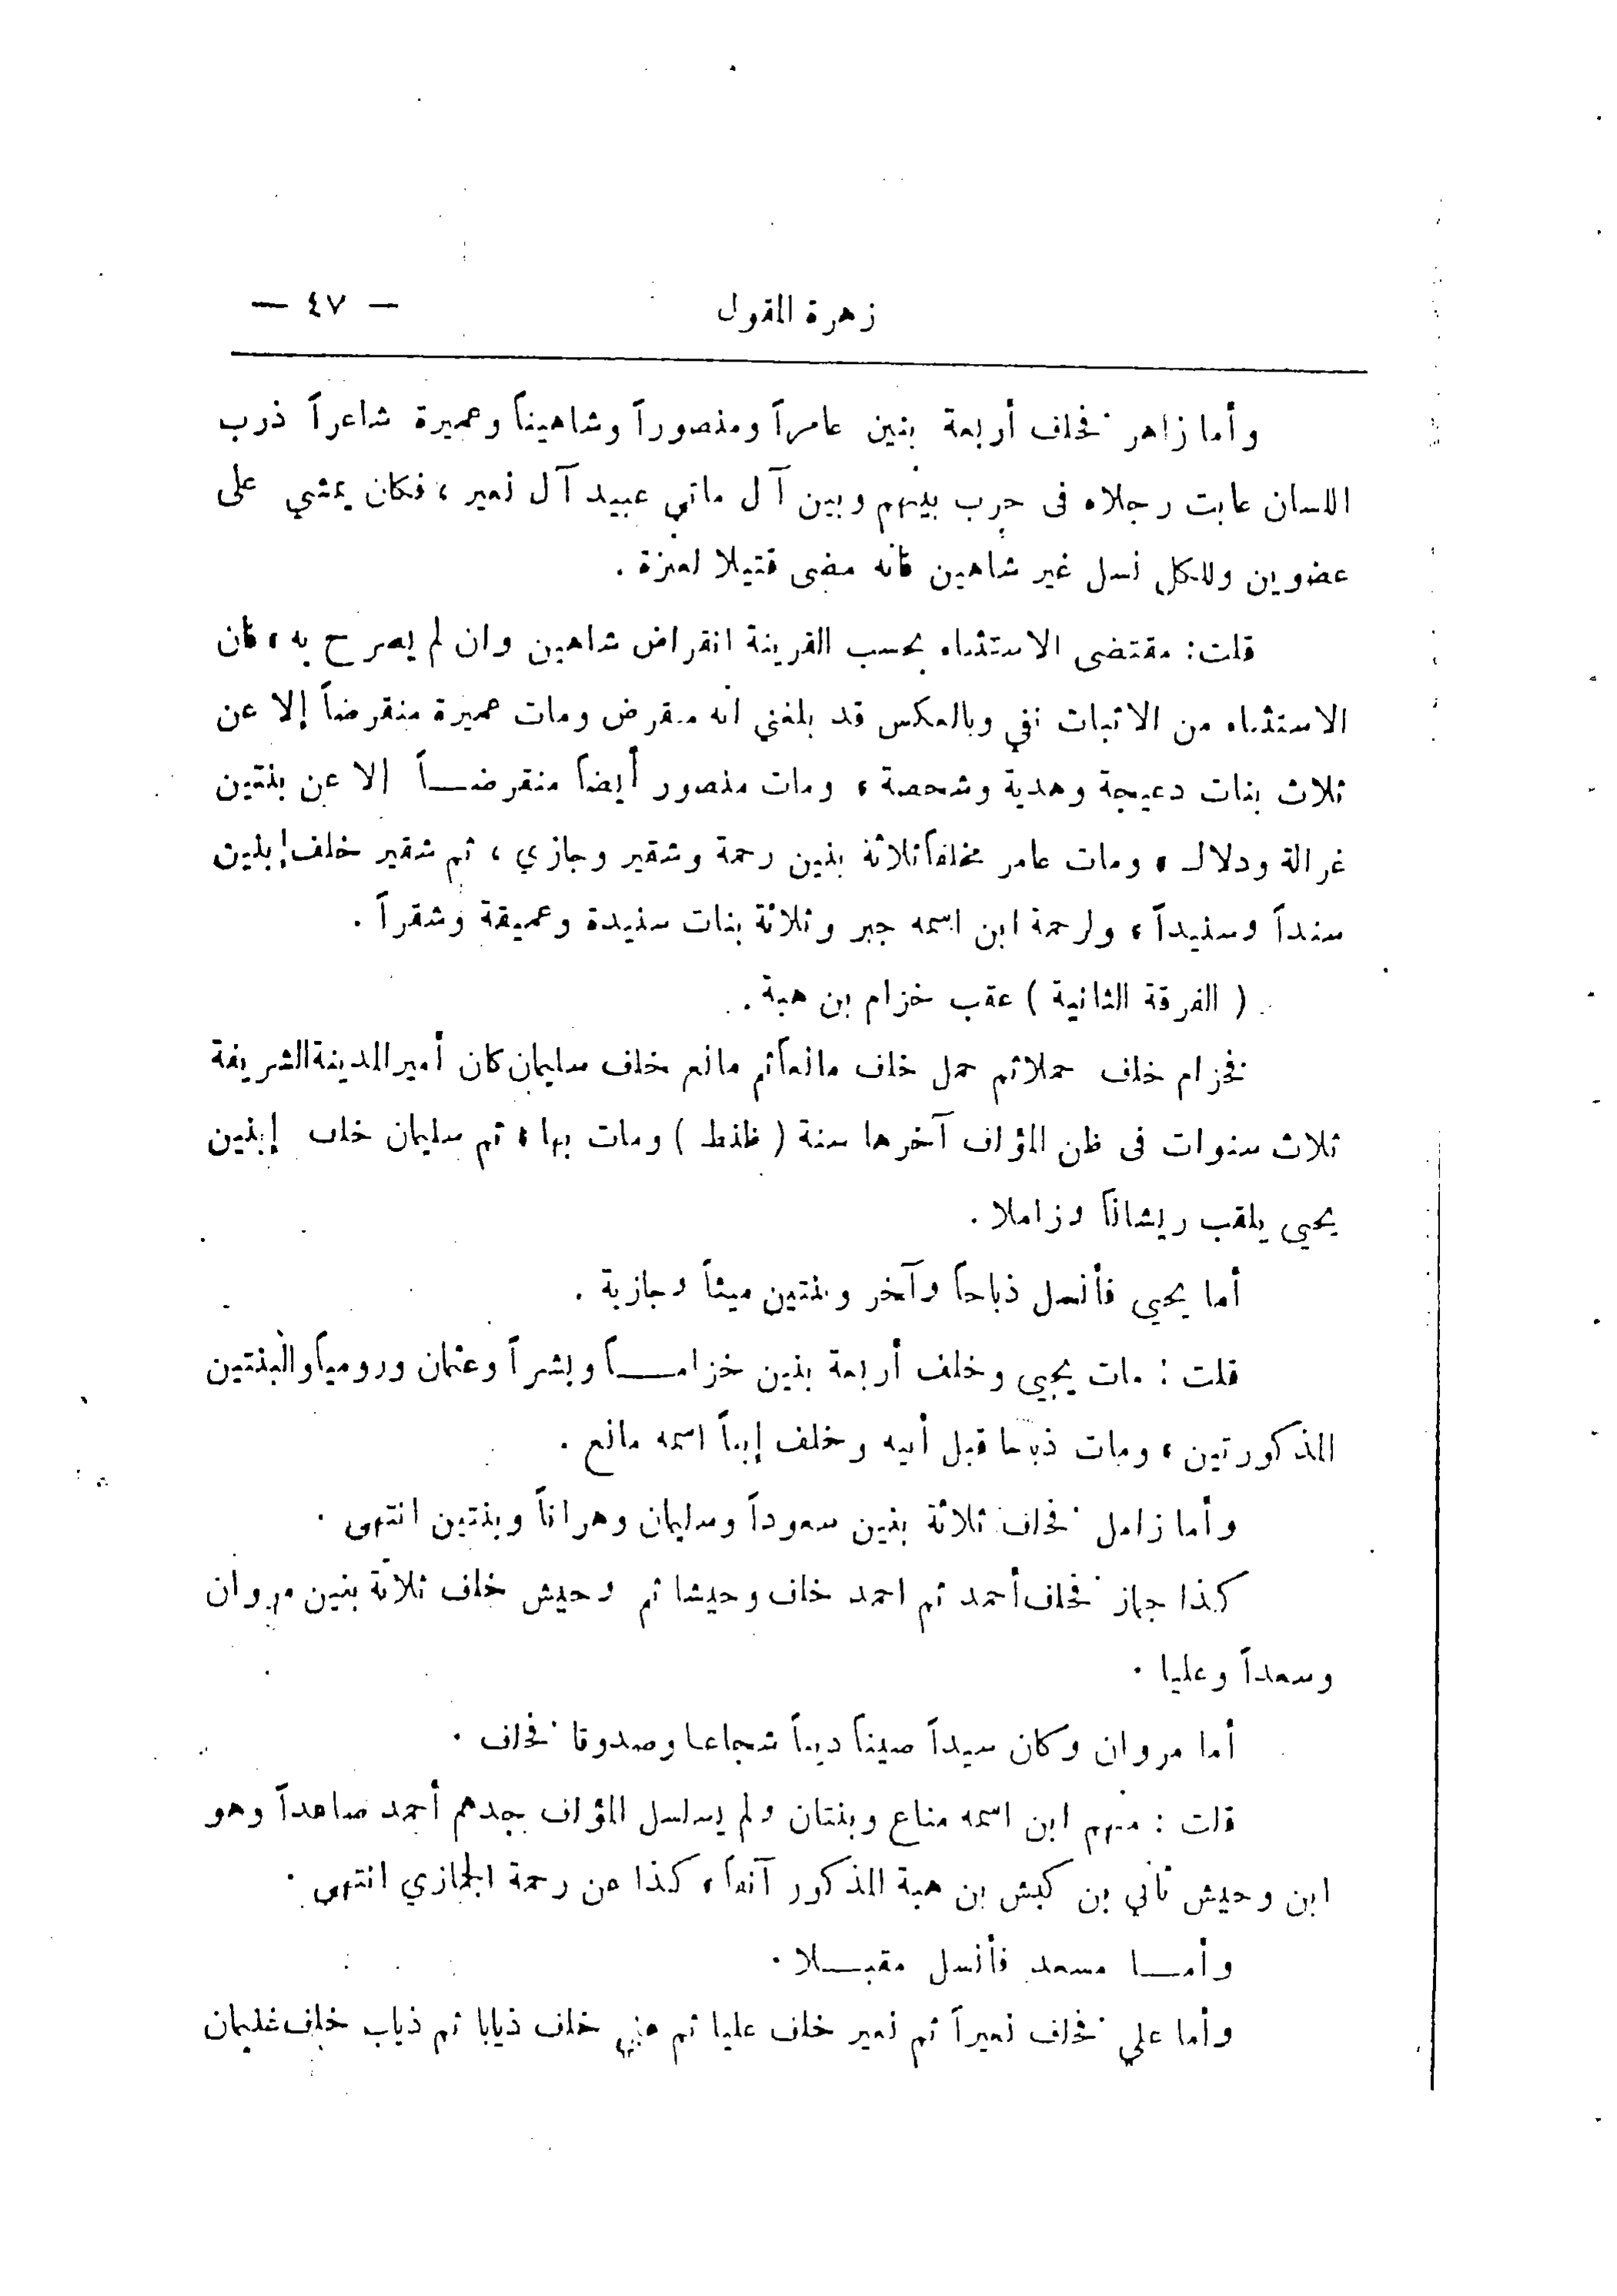 زهرة المقول — ٤٧ —
وأما زاهر فخلف أربعة بنين عامراً ومنصوراً وشاهيناً وعميرة شاعراً ذرب
اللسان عابت رجلاه فى حرب بينهم وبين آل ماني عبيد آل نعير ، فكان يمشي على
عضوين وللكل نسل غير شاهين فانه مضى قتيلا لعنزة .
قلت : مقتضى الاستثناء بحسب القرينة انقراض شاهين وان لم يصرح به ، فان
الاستثناء من الاثبات نفي وبالعكس قد بلغني انه منقرض ومات عميرة منقرضاً إلا عن
ثلاث بنات دعيجة وهدية وشحصة ، ومات منصور أيضاً منقرضاً إلا عن بنتين
غرالة ودلال ، ومات عامر مخلفاً ثلاثة بنين رحمة وشقير وجازي ، ثم شقير خلف إبنين
سنداً وسنيداً ، ولرحمة ابن اسمه جبر وثلاثة بنات سنيدة وعميقة وشقراً .
( الفرقة الثانية ) عقب خزام بن هبة .
فخزام خلف حملا ثم حمل خلف مانعاً ثم مانع خلف سليمان كان أمير المدينة الشريفة
ثلاث سنوات فى ظن المؤلف آخرها سنة ( ظنط ) ومات بها ، ثم سليمان خلف إبنين
يحيى يلقب ريشاناً وزاملا .
أما يحيى فأنسل ذباحاً وآخر وبنتين ميثاً وجازية .
قلت : مات يحيى وخلف أربعة بنين خزاماً وبشراً وعثمان ورومياً والبنتين
المذكورتين ، ومات ذباحا قبل أبيه وخلف إبناً اسمه مانع .
وأما زامل فخلف ثلاثة بنين سعوداً وسليمان وهراناً وبنتين انتهى .
كذا جماز فخلف أحمد ثم احمد خلف وحيشا ثم وحيش خلف ثلاثة بنين مروان
وسعداً وعليا .
أما مروان وكان سيداً صيناً ديناً شجاعا وصدوقا فخلف .
قلت : منهم ابن اسمه مناع وبنتان ولم يسلسل المؤلف بجدهم أحمد صاعداً وهو
ابن وحيش ثاني بن كبش بن هبة المذكور آنفاً ، كذا عن رحمة الجمازي انتهى .
وأما مسعد فأنسل مقبلا .
وأما علي فخلف نعيراً ثم نعير خلف عليا ثم علي خلف ذيابا ثم ذياب خلف غليمان